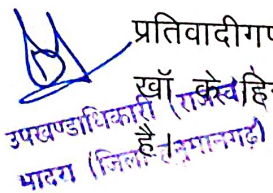 प्रतिवादीगण
खाँ के हि
है।
उपखण्डाधिकारी (राजस्व)
भादरा (जिला-हनुमानगढ़)